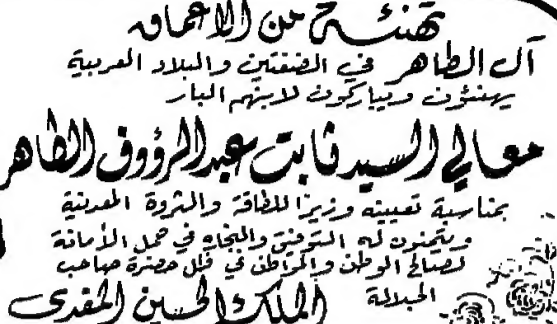 تهنئة من الأعماق
آل الطاهر في الضفتين والبلاد العربية
يهنئون ويباركون لابنهم البار
معالي السيد ثابت عبدالرؤوف الطاهر
بمناسبة تعيينه وزيرا للطاقة والثروة المعدنية
ويتمنون له التوفيق والنجاح في حمل الأمانة
لصالح الوطن والمواطن في ظل حضرة صاحب
الجلالة الملك الحسين المفدى